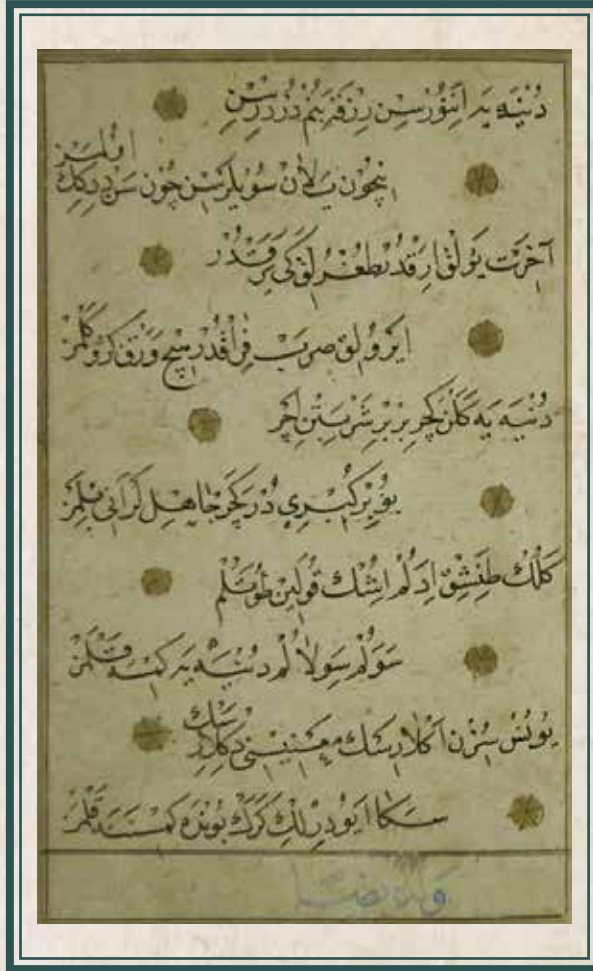 دُنْيَه يَه اِنَنُورْسِن رِزْقَه بَنُمْ دُرْ دِرْسِنْ
نِچُون يَلَانْ سُويْلَرْسِنْ چُون سَنْ دِدِكِكْ اُولْمَزْ
آخِرَتْ يَوْلَقْ اِرَقْدُرْ طُغْرُلِقْ كَى يَرَقْدُرْ
اَيْرُولِقْ صَرپْ فِرَاقْدُرْ هِيچْ وَرَنْ كَرُو كَلْمَزْ
دُنْيَه يَه كَلَنْ كَچَرْ بِرْ بِرْ شَرْبَتِنْ اِچَرْ
بُو بِرْ كُپْرِي دُرْ كَچَرْ جَاهِلْلَرْ اَنِى بِلْمَزْ
كَلُكْ طَنِشِقْ اِدَلُمْ اِشُكْ قُولَيِنْ طُوتَلُمْ
سَوَلُمْ سَوِلَالُمْ دُنْيَه يَه كِمْسَه قَلْمَزْ
يُونُسْ سُزِنْ اَكْلَارِسَكْ مَعْنِيسِنِى دِكْلَرْسَكْ
سَكَا اَيُو دِرْلِكْ كَرَكْ بُونْدَه كِمَسْنَه قَلْمَزْ